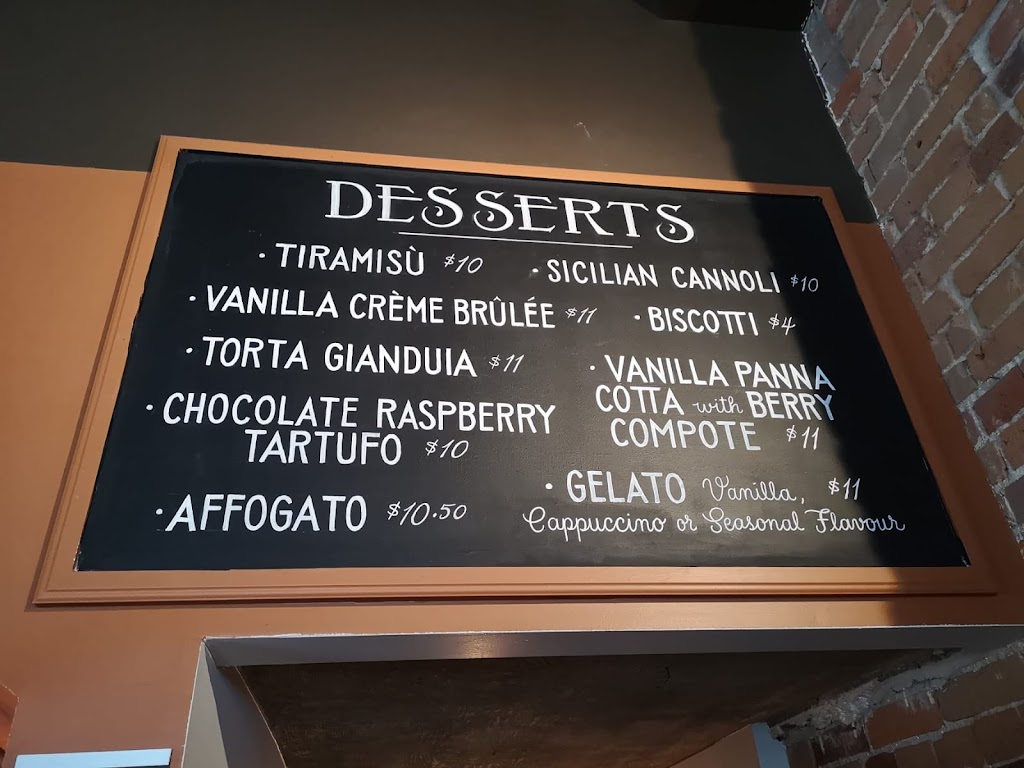 DESSERTS
· TIRAMISÙ $10
· VANILLA CRÈME BRÛLÉE $11
· TORTA GIANDUIA $11
· CHOCOLATE RASPBERRY
TARTUFO $10
· AFFOGATO $10.50
· SICILIAN CANNOLI $10
· BISCOTTI $4
· VANILLA PANNA
COTTA with BERRY
COMPOTE $11
· GELATO Vanilla, $11
Cappuccino or Seasonal Flavour